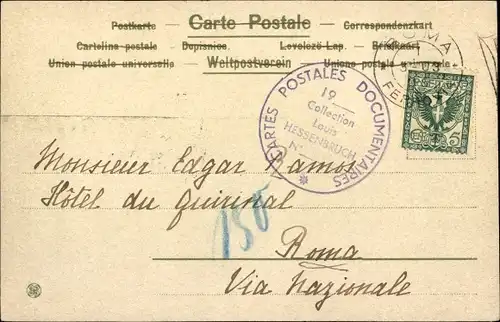 Postkarte Carte Postale Correspondenzkart
Cartolina postale Dopisnice. Levelező-Lap. Briefkaart
Union postale universelle Weltpostverein Unione postale universale
ROMA
FE
CARTES POSTALES DOCUMENTAIRES
19
Collection
Louis
HESSENBRUCH
N°
Monsieur Edgar Ramos
Hôtel du Quirinal
150
Roma
Via Nazionale